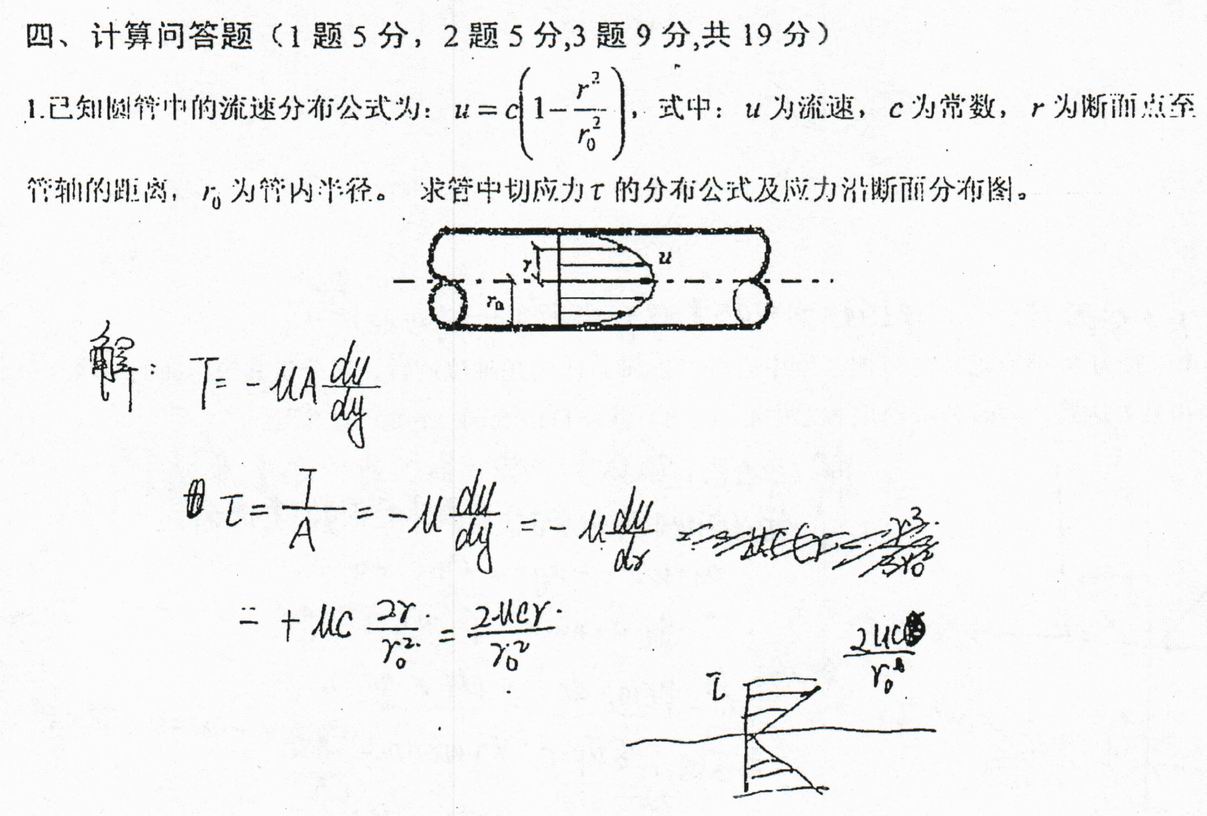 四、计算问答题（1题5分，2题5分,3题9分,共19分）
1.已知圆管中的流速分布公式为：u=c(1-r²/r₀²)，式中：u为流速，c为常数，r为断面点至
管轴的距离，r₀为管内半径。 求管中切应力τ的分布公式及应力沿断面分布图。
r u
r₀
解：T=-μA du/dy
τ=T/A=-μ du/dy=-μ du/dr
=+μc 2r/r₀²=2μcr/r₀²
τ 2μc/r₀